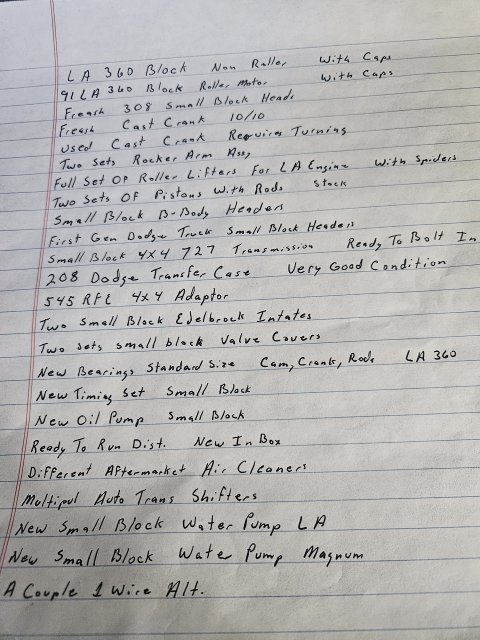 LA 360 Block Non Roller With Caps
91 LA 360 Block Roller Motor With Caps
Freash 308 Small Block Heads
Freash Cast Crank 10/10
Used Cast Crank Requires Turning
Two Sets Rocker Arm Assy
Full Set Of Roller Lifters For LA Engine With Spiders
Two Sets Of Pistons With Rods Stock
Small Block B-Body Headers
First Gen Dodge Truck Small Block Headers
Small Block 4x4 727 Transmission Ready To Bolt In
208 Dodge Transfer Case Very Good Condition
545 RFE 4x4 Adaptor
Two Small Block Edelbrock Intates
Two sets small block Valve Covers
New Bearings Standard Size Cam, Crank, Rods LA 360
New Timing Set Small Block
New Oil Pump Small Block
Ready To Run Dist. New In Box
Different Aftermarket Air Cleaners
Multipul Auto Trans Shifters
New Small Block Water Pump LA
New Small Block Water Pump Magnum
A Couple 1 Wire Alt.